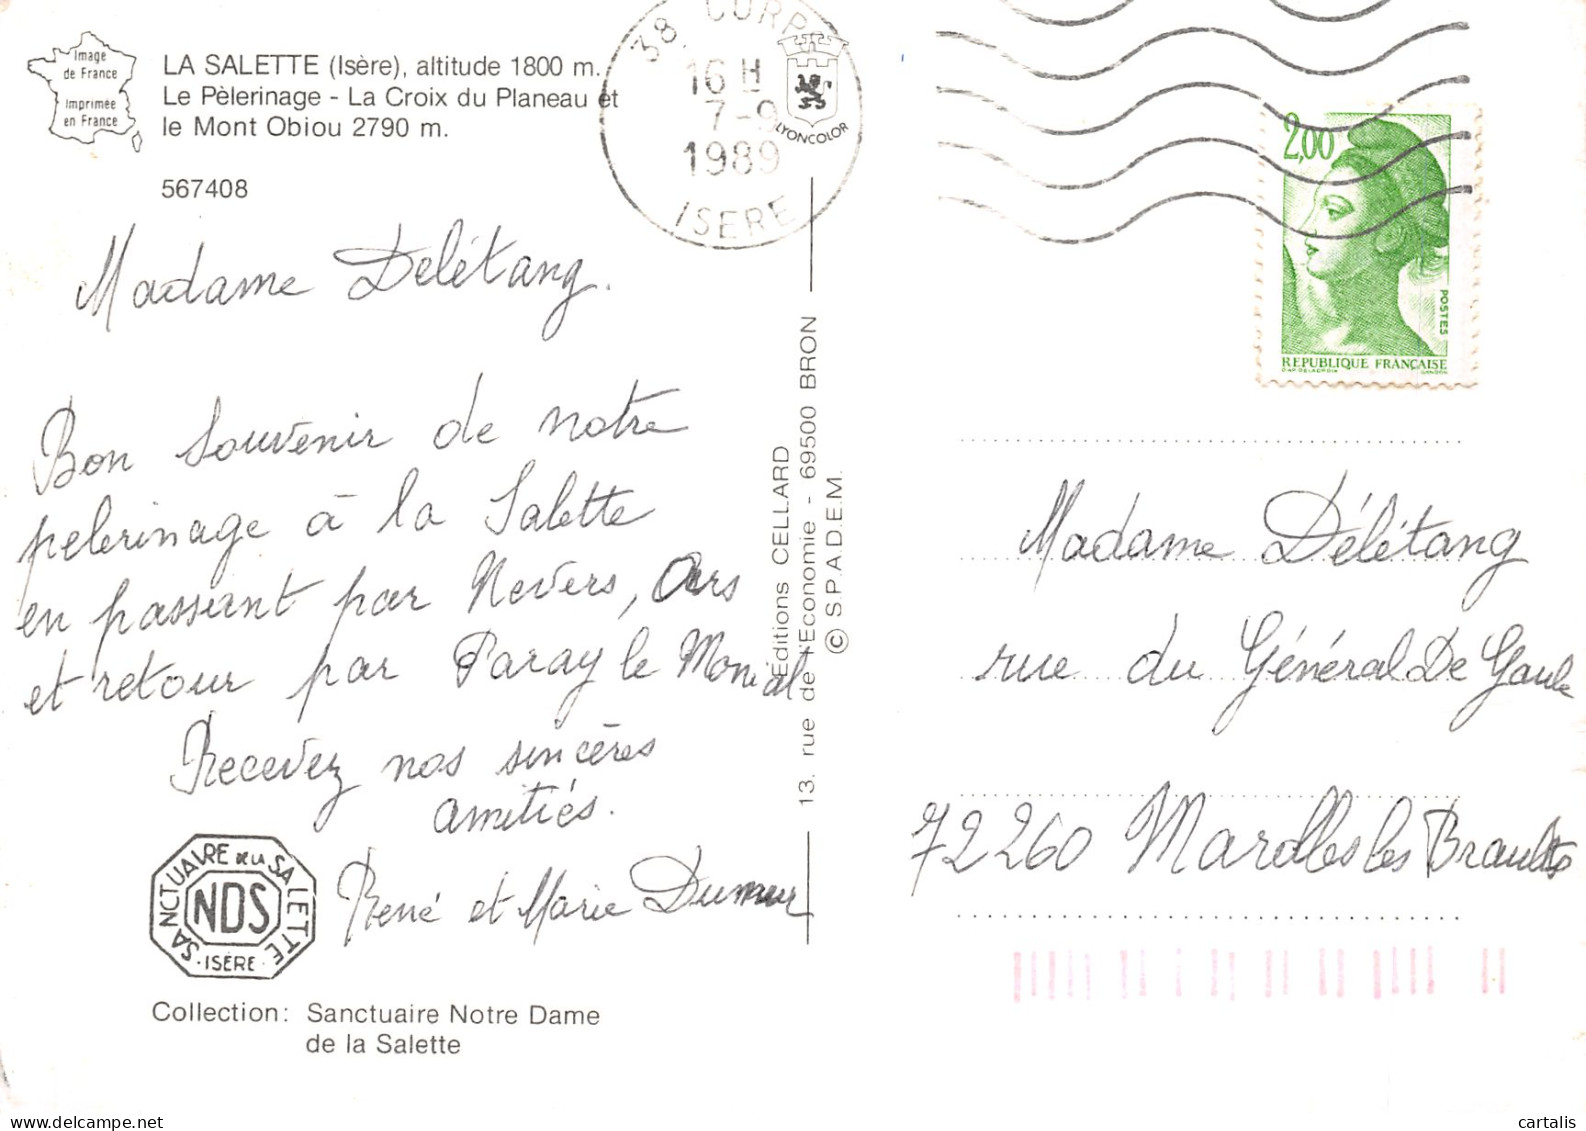 Image
de France
Imprimée
en France
LA SALETTE (Isère), altitude 1800 m.
Le Pèlerinage - La Croix du Planeau et
le Mont Obiou 2790 m.
567408
38 CORP
16 H
7-9
1989
ISERE
LYONCOLOR
2,00
POSTES
REPUBLIQUE FRANÇAISE
Madame Delétang.
Bon souvenir de notre
pelerinage à la Salette
en passant par Nevers, Ars
et retour par Paray le Monial
Recevez nos sincères
amitiés.
René et Marie
SANCTUAIRE DE LA SALETTE
NDS
·ISÈRE·
Collection: Sanctuaire Notre Dame
de la Salette
Éditions CELLARD
13, rue de l'Économie - 69500 BRON
© S.P.A.D.E.M.
Madame Délétang
rue du Général De Gaule
72260 Marolles les Braults
cartalis